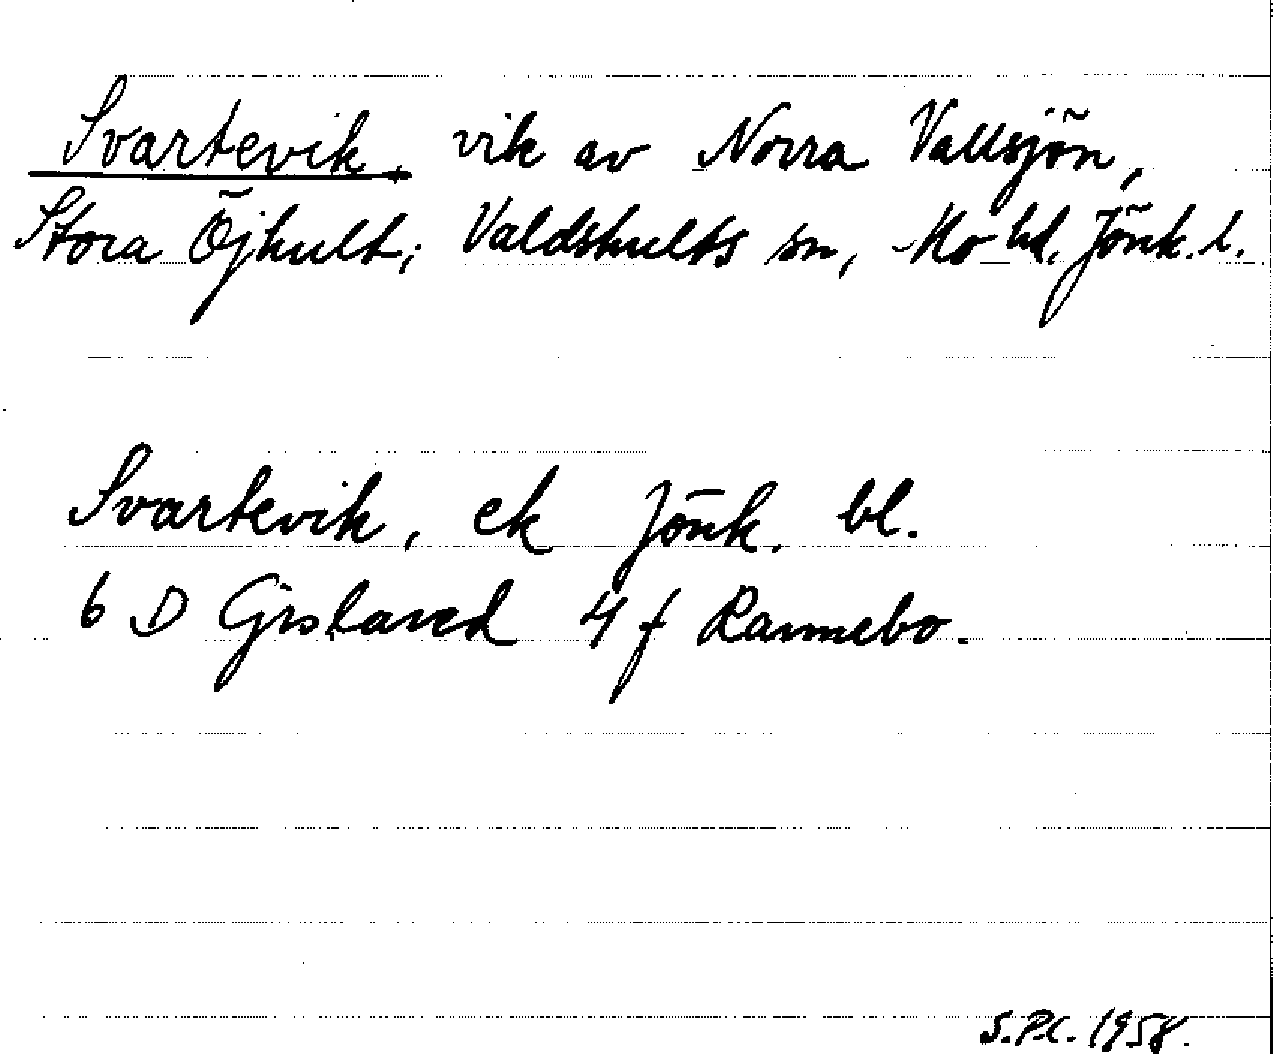 Svartevik, vik av Norra Vallsjön,
Stora Öjhult, Valdshults sn, Mo hd. Jönk. l.
Svartevik, ek Jönk. bl.
6 D Gislaved 4 f Rannebo.
S.P.C. 1958.